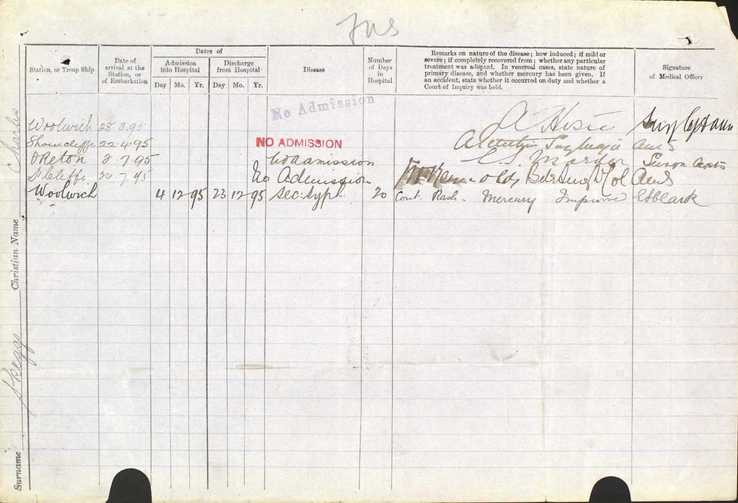 Station, or Troop Ship
Date of arrival at the Station, or of Embarkation
Dates of
Admission into Hospital
Discharge from Hospital
Day Mo. Yr. Day Mo. Yr.
Disease
Number of Days in Hospital
Remarks on nature of the disease; how induced; if mild or
severe; if completely recovered from; whether any particular
treatment was adopted. In venereal cases, state nature of
primary disease, and whether mercury has been given. If
an accident, state whether it occurred on duty and whether a
Court of Inquiry was held.
Signature of Medical Officer
No Admission
Woolwich 28.3.95
Shorncliffe 22.4.95 NO ADMISSION
8.7.95 No admission
.7.95 No Admission
Woolwich 4 12 95 23 12 95 Sec: Syp. 20 Cont. Rash. Mercury Improved
Surname Skeggs Christian Name Charles